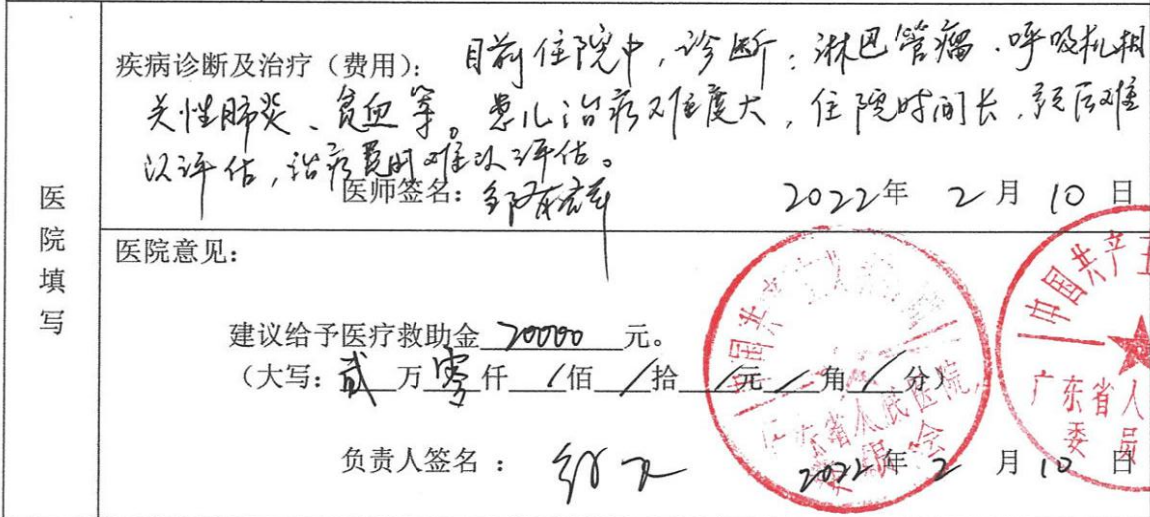 疾病诊断及治疗（费用）： 目前住院中，诊断：淋巴管瘤、呼吸机相
关性肺炎、贫血等。患儿治疗难度大，住院时间长，预后难
以评估，治疗费用难以评估。
医师签名： 2022年 2月 10日
医院填写
医院意见：
建议给予医疗救助金 20000 元。
（大写：贰万零仟/佰/拾/元/角/分）
负责人签名： 2022年 2月 10日
中国共产
广东省人民医院
委员会
中国共产
广东省人
委员